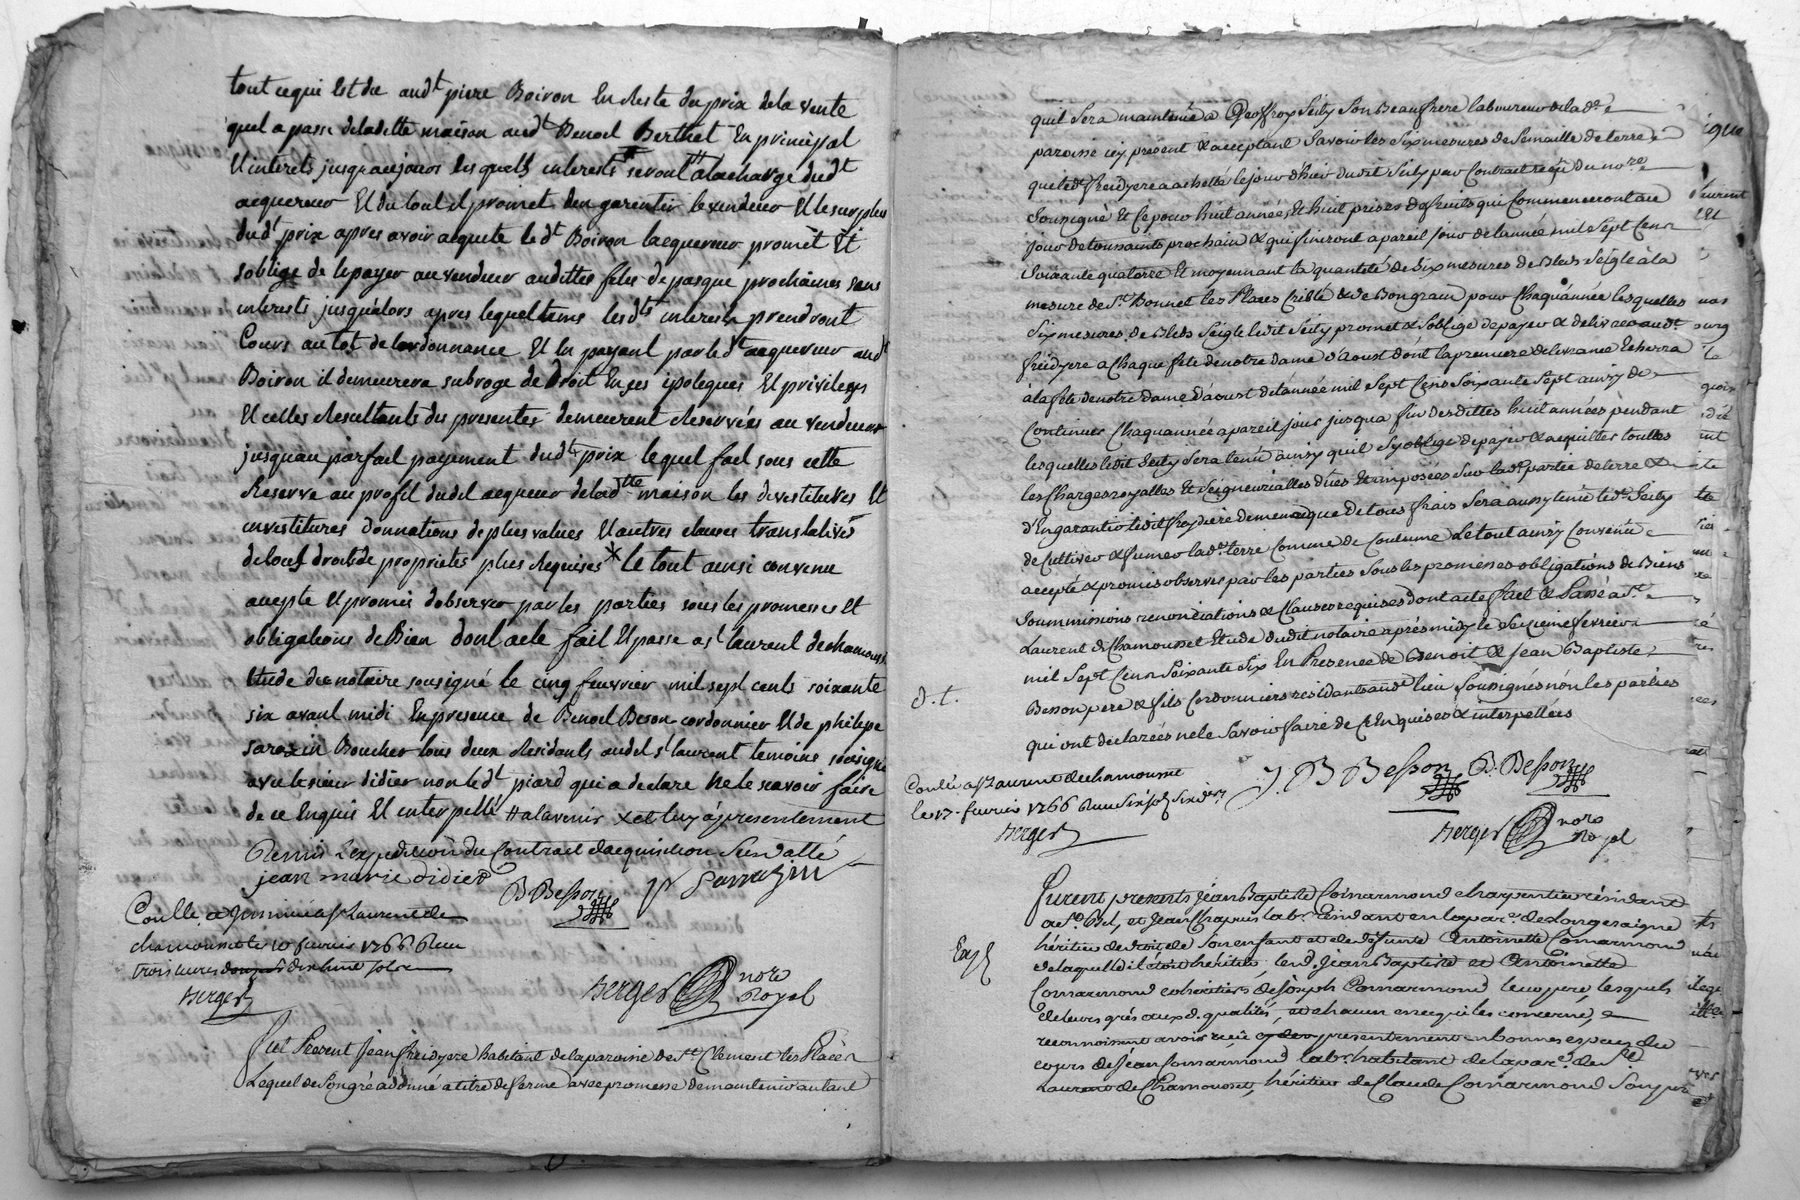 tout cequi Est du audt pierre Boiron En Reste du prix dela vente
quil a passé deladitte maison audt Benoit Berthet En principal
Et interets jusquaujourd les quels interests seront alacharge dudt
acquereur Et du tout il promet den garentir levendeur Et lesurplus
dudt prix apres avoir acquité ledt Boiron lacquereur promet Et
soblige de lepayer auvendeur audittes fetes de pasque prochaines sans
interests jusqualors apres lequeltems lesdts interests prendront
Cours autot de lordonnance Et En payant parledt acquereur audt
Boiron il demeurera subrogé de Droit En ses ipoteques Et privileges
Et celles Resultants des presentes demeurent Reservées au vendeur
jusquau parfait payement dudt prix lequel fait sous cette
Reserve au profit dudit acquereur deladtte maison les devestitures Et
investitures donnations de plus values Et autres clauses translatives
detout droit de proprietés plus Requises * le tout ainsi convenu
accepté Et promis dobserver par les parties sous les promesses Et
obligations de Bien dont acte fait Et passé a st laurent dechamousset
Etude du notaire sousigné le cinq feuvrier mil sept cents soixante
six avant midi En presence de Benoit Beson cordonnier Et de philipe
sarazin Boucher tous deux Residants audit st laurent temoins sousignés
avec le sieur didier non ledt piard qui a declaré ne le scavoir faire
de ce Enquis Et interpellé # alavenir x et luy a presentement
Remis lexpedition du Contrat dacquisition Susdatté
jean marie didier B Besson p Sarrazin
Conllé a st Laurent de
chamousset le 10 fevrier 1766 Reçu
trois livres dix huit sols
Berger
Berger nore
Royal
fut Present Jean freidyere habitant de la paroisse de St Clement les Places
Lequel de son gré a donné a titre de ferme avec promesse de maintenir autant
quil sera maintenu a Geoffroy Seity son Beaufrere laboureur de lade
paroisse icy present & acceptant Savoir les Six mesures de Semaille de terre
que ledt freidyere a achetté le jour d'hier dudit Seity par Contrat reçu du nore
Sousigné Et ce pour huit années Et huit prises de fruits qui Commenceront au
jour de toussaints prochain & qui finiront a pareil jour de l'année mil Sept Cens
Soixante quatorze Et moyennant la quantité de Six mesures de Bleds Seigle à la
mesure de St Bonnet les Places Criblé & de Bon grain pour Chaqu'année lesquelles
Six mesures de Bleds Seigle ledit Seity promet & soblige de payer & delivrer audt
freidyere a Chaque fete de notre dame d'aoust dont la premiere delivrance Echerra
à la fete de notre dame d'aoust de l'année mil Sept Cens Soixante Sept ainsy de
Continuer Chaquannée a pareil jour jusqua fin desdittes huit années pendant
lesquelles ledit Seity sera tenu ainsy quil s'y oblige de payer & acquitter touttes
les Charges royalles Et Seigneurialles dües Et imposées Sur lade partie de terre &
d'En garantir ledit freydiere de meme que de tous frais Sera aussy tenu ledt Seity
de Cultiver & fumer lade terre Comme de Coutume Le tout ainsy Convenu
accepté & promis observer par les parties Sous les promesses obligations de Biens
Soummissions renonciations & Clauses requises dont acte fait & Passé a St
Laurent de Chamousset Etude dudit notaire après midy le Seizieme fevrier
mil Sept Cens Soixante Six En Presence de Benoit & Jean Baptiste
Besson pere & fils Cordonniers residants audt lieu Sousignés non les parties
qui ont declarées ne le Savoir faire de ce Enquises & interpellées
d. t.
Conllé a st Laurent de chamousset
le 17 fevrier 1766 Reçu Six sols Six ders
Berger
J. B Besson B. Besson
Berger nore
Royal
Furent presents Jean Baptiste Comarmond charpentier résidant
a Ste Bel, et Jean Chapuis labr. résidant en la par. de Longesaigne
héritier de droit de Son enfant et de défunte Antoinette Comarmond
de laquelle il étoit héritier, led. Jean Baptiste et Antoinette
Comarmond cohéritiers de Joseph Comarmond leur pere, lesquels
de leurs grés aux d. qualités, et chacun en ce qui les concerne,
reconnoissent avoir reçu cy devt presentement en bonnes especes du
cours de Jean Comarmond labr. habitant de la par. de St
Laurent de Chamousset, héritier de Claude Comarmond Son pere